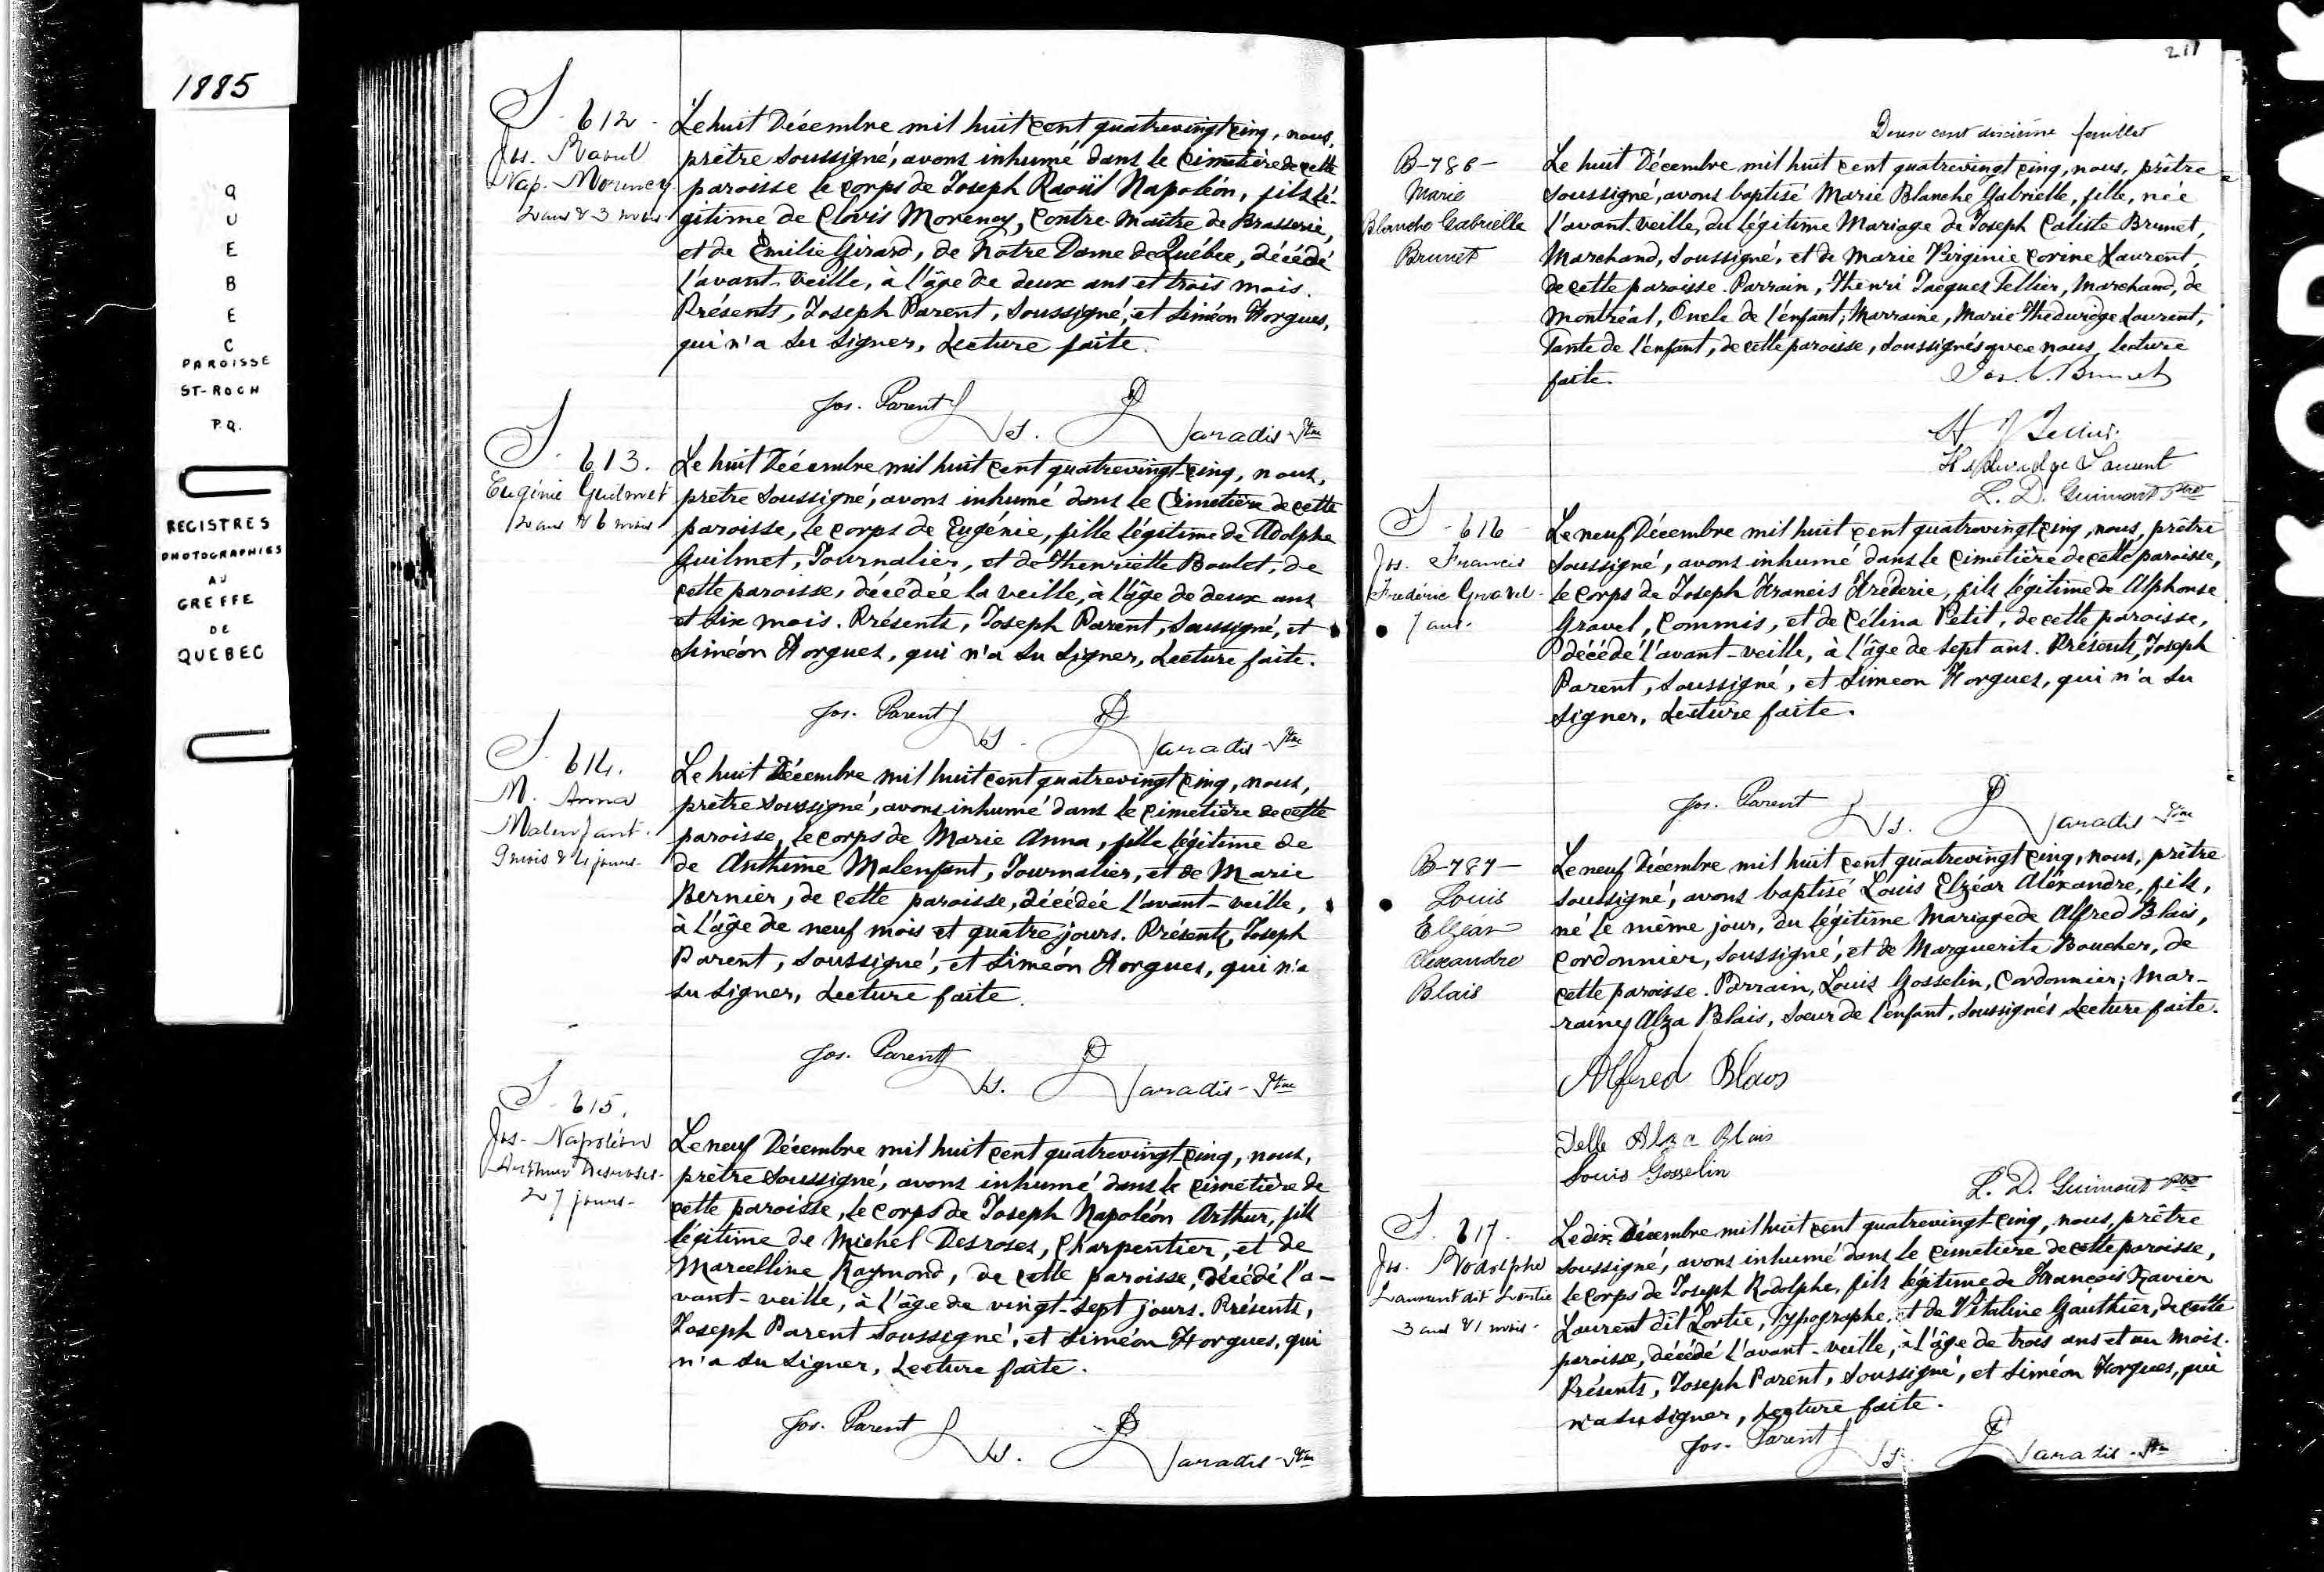 1885
QUEBEC
PAROISSE
ST-ROCH
P.Q.
REGISTRES
PHOTOGRAPHIES
AU
GREFFE
DE
QUEBEC
S. 612.
Jos. Raoul
Nap. Morency
2 ans & 3 mois.
Le huit Décembre mil huit cent quatrevingt cinq, nous,
prêtre soussigné, avons inhumé dans le cimetière de cette
paroisse le corps de Joseph Raoül Napoléon, fils lé-
gitime de Clovis Morency, Contre-maître de Brasserie,
et de Emilie Girard, de Notre Dame de Québec, décédé
l'avant-veille, à l'âge de deux ans et trois mois.
Présents, Joseph Parent, soussigné, et Siméon Horgues,
qui n'a su signer, Lecture faite.
Jos. Parent
Paradis Ptre
S. 613.
Eugénie Guilmet
2 ans & 6 mois
Le huit Décembre mil huit cent quatrevingt-cinq, nous,
prêtre soussigné, avons inhumé dans le Cimetière de cette
paroisse, le corps de Eugénie, fille légitime de Adolphe
Guilmet, Journalier, et de Henriette Boulet, de
cette paroisse, décédée la veille, à l'âge de deux ans
et six mois. Présents, Joseph Parent, soussigné, et
Siméon Horgues, qui n'a su signer, Lecture faite.
Jos. Parent
Paradis Ptre
S. 614.
M. Anna
Malenfant.
9 mois & 4 jours.
Le huit Décembre mil huit cent quatrevingt cinq, nous,
prêtre soussigné, avons inhumé dans le cimetière de cette
paroisse, le corps de Marie Anna, fille légitime de
de Anthime Malenfant, Journalier, et de Marie
Bernier, de cette paroisse, décédée l'avant-veille,
à l'âge de neuf mois et quatre jours. Présents, Joseph
Parent, soussigné, et Siméon Horgues, qui n'a
su signer, Lecture faite.
Jos. Parent
Paradis Ptre
S. 615.
Jos. Napoléon
Arthur Desroses.
27 jours.
Le neuf Décembre mil huit cent quatrevingt-cinq, nous,
prêtre soussigné, avons inhumé dans le cimetière de
cette paroisse, le corps de Joseph Napoléon Arthur, fils
légitime de Michel Desroses, Charpentier, et de
Marcelline Raymond, de cette paroisse, décédé l'a-
vant-veille, à l'âge de vingt-sept jours. Présents,
Joseph Parent soussigné, et Siméon Horgues, qui
n'a su signer, Lecture faite.
Jos. Parent
Paradis Ptre
211
Deux cent onzième feuillet
B-786-
Marie
Blanche Gabrielle
Brunet
Le huit Décembre mil huit cent quatrevingt cinq, nous, prêtre
soussigné, avons baptisé Marie Blanche Gabrielle, fille, née
l'avant-veille, du légitime Mariage de Joseph Caliste Brunet,
Marchand, soussigné, et de Marie Virginie Corine Laurent,
de cette paroisse. Parrain, Henri Jacques Tellier, Marchand, de
Montréal, Oncle de l'enfant; Marraine, Marie Heduvidge Laurent,
Tante de l'enfant, de cette paroisse, soussignés avec nous, Lecture
faite.
Jos. C. Brunet
H J Tellier
Heduvidge Laurent
L. D. Guimont Ptre
S. 616
Jos. Francis
Frédéric Gravel.
7 ans.
Le neuf Décembre mil huit cent quatrevingt-cinq, nous, prêtre
soussigné, avons inhumé dans le cimetière de cette paroisse,
le corps de Joseph Francis Fréderic, fils légitime de Alphonse
Gravel, Commis, et de Célina Petit, de cette paroisse,
décédé l'avant-veille, à l'âge de sept ans. Présents, Joseph
Parent, soussigné, et Simeon Horgues, qui n'a su
signer, Lecture faite.
Jos. Parent
Paradis Ptre
B-787-
Louis
Elzéar
Alexandre
Blais
Le neuf Décembre mil huit cent quatrevingt cinq, nous, prêtre
soussigné, avons baptisé Louis Elzéar Aléxandre, fils,
né le même jour, du légitime Mariage de Alfred Blais,
Cordonnier, soussigné, et de Marguerite Boucher, de
cette paroisse. Parrain, Louis Gosselin, Cordonnier; Mar-
raine, Alza Blais, Soeur de l'enfant, soussignés, Lecture faite.
Alfred Blais
Delle Alza Blais
Louis Gosselin
L. D. Guimont Ptre
S. 617.
Jos. Rodolphe
Laurent dit Lortie
3 ans & 1 mois.
Le dix Décembre mil huit cent quatrevingt-cinq, nous, prêtre
soussigné, avons inhumé dans le cimetière de cette paroisse,
le corps de Joseph Rodolphe, fils légitime de François Xavier
Laurent dit Lortie, Typographe, et de Vitaline Gauthier, de cette
paroisse, décédé l'avant-veille, à l'âge de trois ans et un mois.
Présents, Joseph Parent, soussigné, et Siméon Horgues, qui
n'a su signer, Lecture faite.
Jos. Parent
Paradis Ptre